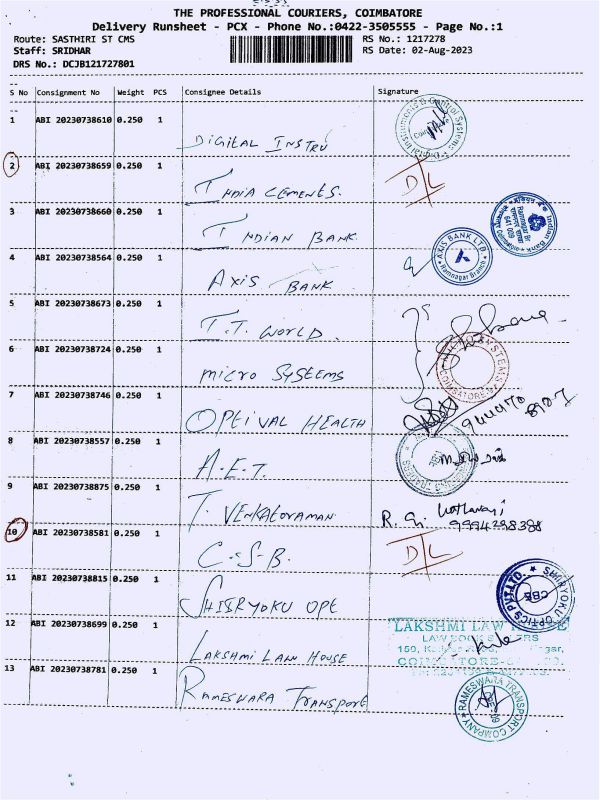 THE PROFESSIONAL COURIERS, COIMBATORE
Delivery Runsheet - PCX - Phone No.:0422-3505555 - Page No.:1
Route: SASTHIRI ST CMS RS No.: 1217278
Staff: SRIDHAR RS Date: 02-Aug-2023
DRS No.: DCJB121727801
S No Consignment No Weight PCS Consignee Details Signature
1 ABI 20230738610 0.250 1
DIGITAL INSTRU
2 ABI 20230738659 0.250 1
INDIA CEMENTS. D/L
3 ABI 20230738660 0.250 1
INDIAN BANK.
4 ABI 20230738564 0.250 1
AXIS BANK
AXIS BANK LTD.
Ramnagar Branch
5 ABI 20230738673 0.250 1
T.T. WORLD.
6 ABI 20230738724 0.250 1
MICRO SYSTEMS
7 ABI 20230738746 0.250 1
OPTIVAL HEALTH
8 ABI 20230738557 1
A.E.T.
9 ABI 20230738875 0.250 1
T. VENKATORAMAN R. G.
9994298388
10 ABI 20230738581 0.250 1
C.S.B. D/L
11 ABI 20230738815 0.250 1
SHIBRYOKU OPE
SHIRYOKU OPTICS PVT.LTD. CBE
12 ABI 20230738699 0.250 1
LAKSHMI LAW HOUSE
LAKSHMI LAW HOUSE
LAW BOOK SELLERS
13 ABI 20230738781 0.250 1
RAMESWARA TRANSPORT
RAMESWARA TRANSPORT COMPANY